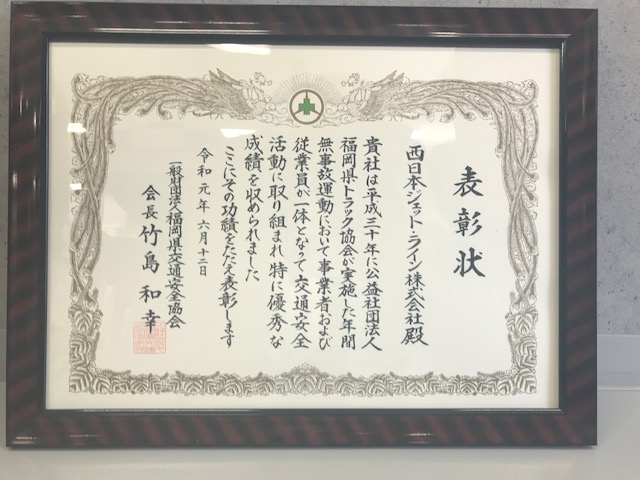 表彰状
西日本ジェット・ライン株式会社殿
貴社は平成三十年に公益社団法人
福岡県トラック協会が実施した年間
無事故運動において事業者および
従業員が一体となって交通安全
活動に取り組まれ特に優秀な
成績を収められました
ここにその功績をたたえ表彰します
令和元年六月十二日
一般財団法人福岡県交通安全協会
会長竹島和幸